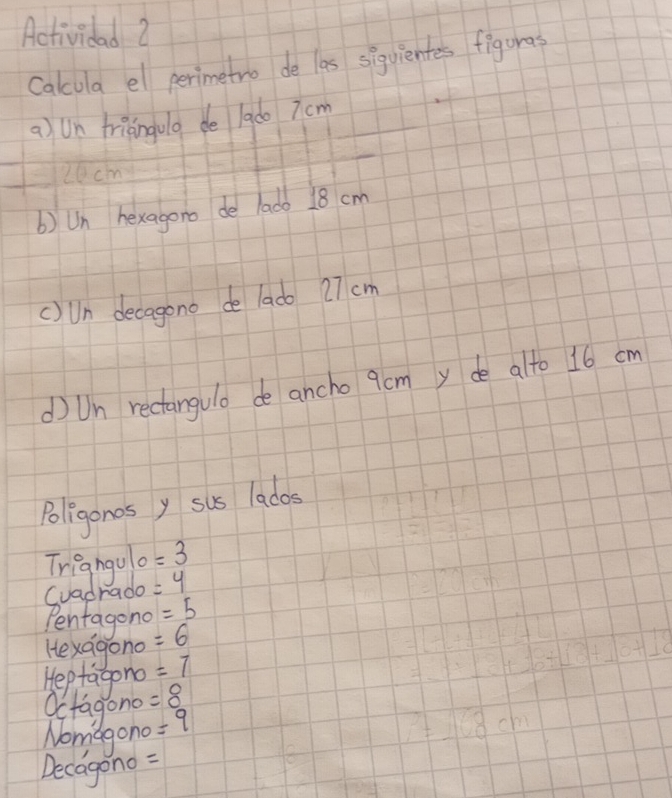 Actividad 2
Calcula el perimetro de las siguientes figuras
a) Un triángulo de lado 7cm
b) Un hexagono de lado 18 cm
c) Un decagono de lado 27 cm
d) Un rectangulo de ancho 9cm y de alto 16 cm
Poligonos y sus lados
Triangulo = 3
Cuadrado = 4
Pentagono = 5
Hexágono = 6
Heptágono = 7
Octágono = 8
Nomágono = 9
Decágono =